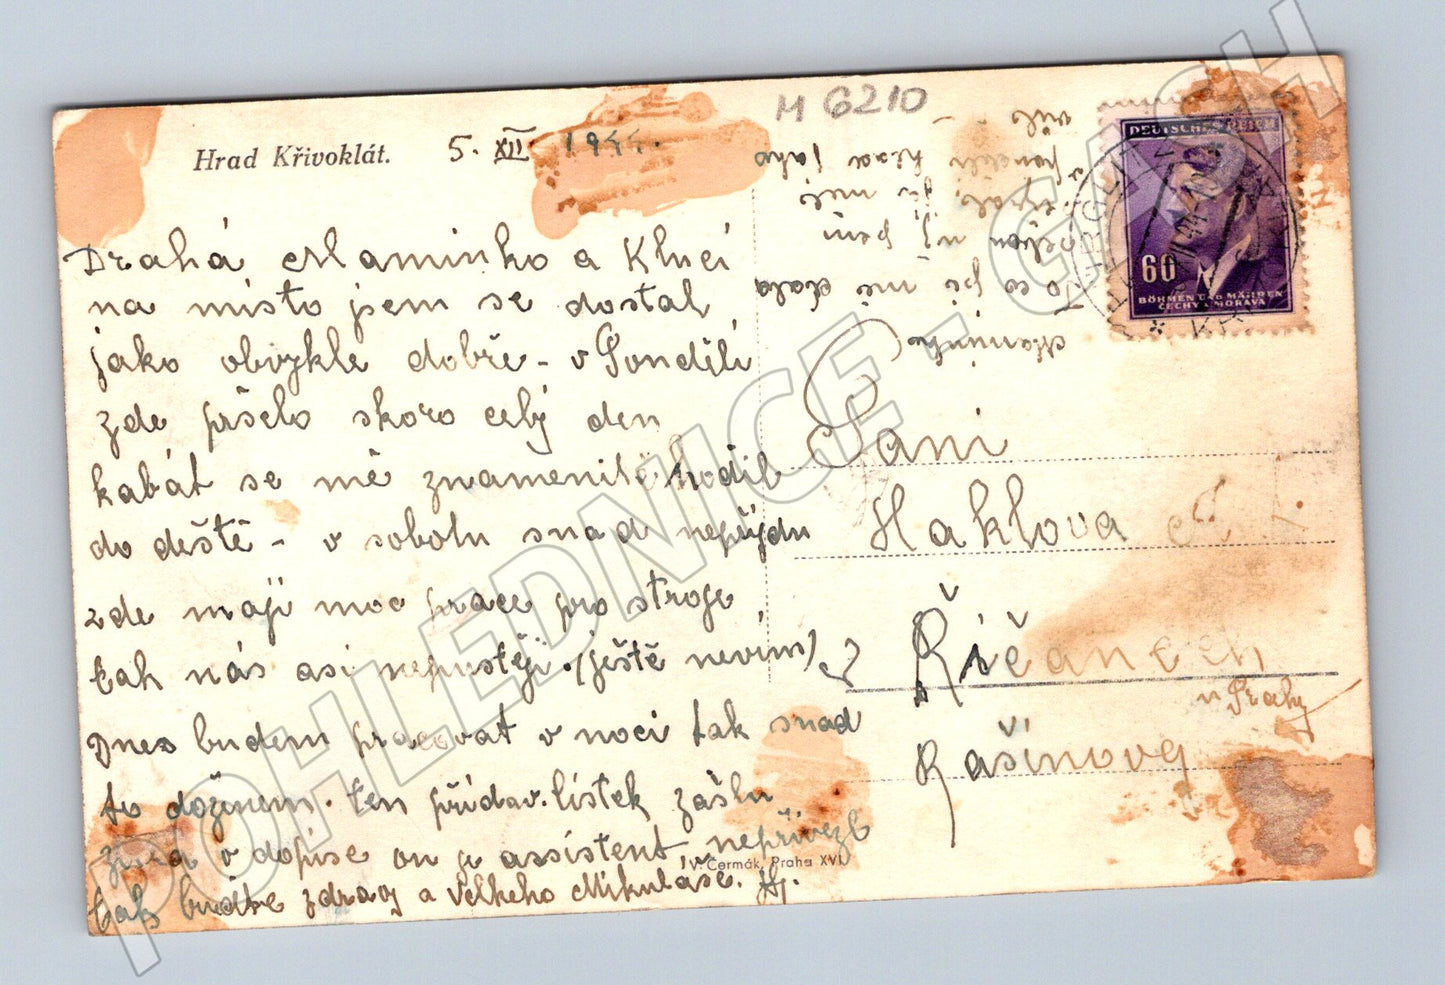 M 6210
Hrad Křivoklát.
5. XII 1944.
Drahá Maminko a Kluci
na místo jsem se dostal
jako obvykle dobře - v Pondělí
zde pršelo skoro celý den
kabát se mě znamenitě hodil
do deště - v sobotu snad nepřijdu
zde mají moc práce pro stroje
tak nás asi nepustěji. (ještě nevím)
Dnes budem pracovat v noci tak snad
to doženem. ten přídav. lístek zašlu
v dopise on je assistent nepřivezl
tak buďte zdravy a Velkeho Mikuláše.
V. Čermák, Praha XVI.
Maminko
To co jsi mě dala
jsi mě
DEUTSCHES REICH
60
BÖHMEN UND MÄHREN
ČECHY A MORAVA
Paní
Haklova
Říčanech
u Prahy
Rašínova
POHLEDNICE - GASH